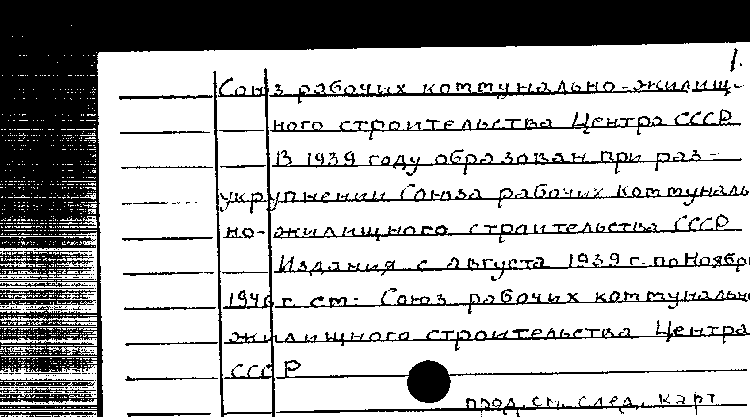 1.
Союз рабочих коммунально-жилищ-
ного строительства Центра СССР
В 1939 году образован при раз-
укрупнении Союза рабочих коммуналь
но-жилищного строительства СССР
Издания с августа 1939 г. по Ноябрь
1946 г. см. Союз рабочих коммунально
жилищного строительства Центра
СССР
прод. см. след. карт.